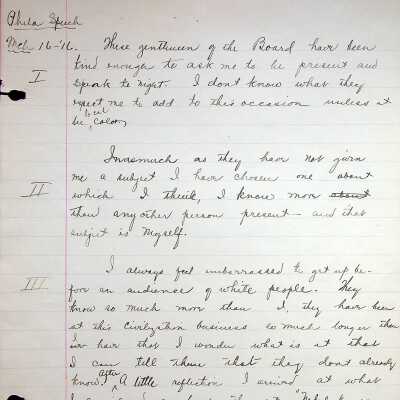 Phila Speech
Mch 16-16. These gentlemen of the Board have been
I kind enough to ask me to be present and
speak to night. I don't know what they
expect me to add to this occasion unless it
be local color,
Inasmuch as they have not given
me a subject I have chosen one about
II which I think, I know more about
than any other person present – and that
subject is Myself.
III I always feel embarrassed to get up be-
for an audience of white people. They
know so much more than I, they have been
at this Civilization business so much longer than
hav that I wonder what is it that
I can tell them that they dont already
know. After A little reflection I arrived at what